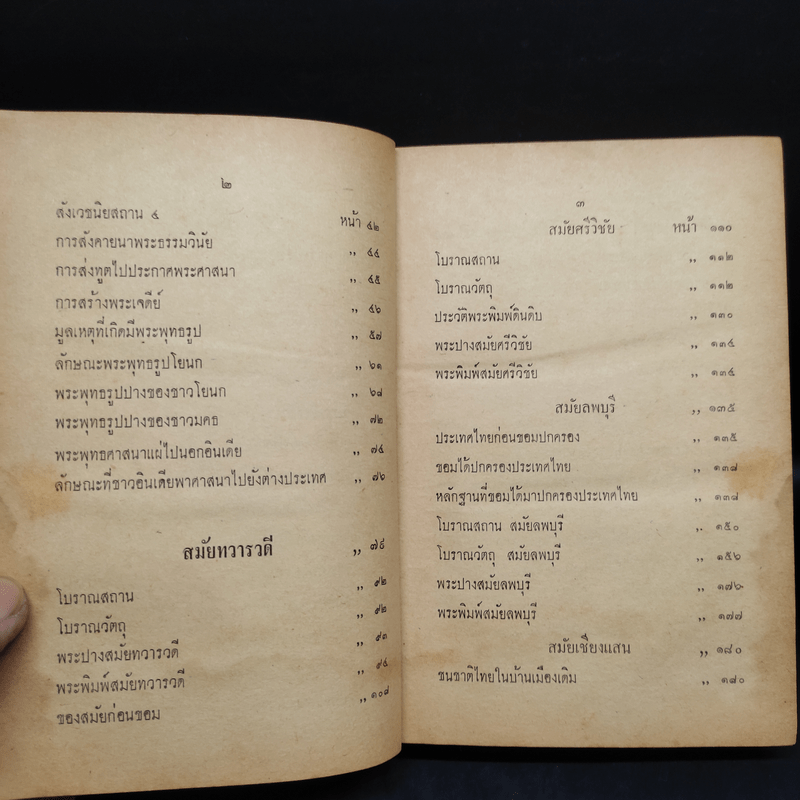 ๒
สังเวชนียสถาน ๔ หน้า ๔๒
การสังคายนาพระธรรมวินัย ,, ๔๔
การส่งทูตไปประกาศพระศาสนา ,, ๔๕
การสร้างพระเจดีย์ ,, ๔๖
มูลเหตุที่เกิดมีพระพุทธรูป ,, ๕๗
ลักษณะพระพุทธรูปโยนก ,, ๖๑
พระพุทธรูปปางของชาวโยนก ,, ๖๘
พระพุทธรูปปางของชาวมคธ ,, ๗๒
พระพุทธศาสนาแผ่ไปนอกอินเดีย ,, ๗๔
ลักษณะที่ชาวอินเดียพาศาสนาไปยังต่างประเทศ ,, ๗๖
สมัยทวารวดี ,, ๗๙
โบราณสถาน ,, ๙๒
โบราณวัตถุ ,, ๙๒
พระปางสมัยทวารวดี ,, ๙๓
พระพิมพ์สมัยทวารวดี ,, ๙๔
ของสมัยก่อนขอม ,, ๑๐๘
๓
สมัยศรีวิชัย หน้า ๑๑๐
โบราณสถาน ,, ๑๑๒
โบราณวัตถุ ,, ๑๑๒
ประวัติพระพิมพ์ดินดิบ ,, ๑๓๐
พระปางสมัยศรีวิชัย ,, ๑๓๔
พระพิมพ์สมัยศรีวิชัย ,, ๑๓๔
สมัยลพบุรี ,, ๑๓๕
ประเทศไทยก่อนขอมปกครอง ,, ๑๓๕
ขอมได้ปกครองประเทศไทย ,, ๑๓๗
หลักฐานที่ขอมได้มาปกครองประเทศไทย ,, ๑๓๘
โบราณสถาน สมัยลพบุรี ,. ๑๕๐
โบราณวัตถุ สมัยลพบุรี ,, ๑๕๖
พระปางสมัยลพบุรี ,, ๑๗๖
พระพิมพ์สมัยลพบุรี ,, ๑๗๗
สมัยเชียงแสน ,, ๑๘๐
ชนชาติไทยในบ้านเมืองเดิม ,, ๑๘๐